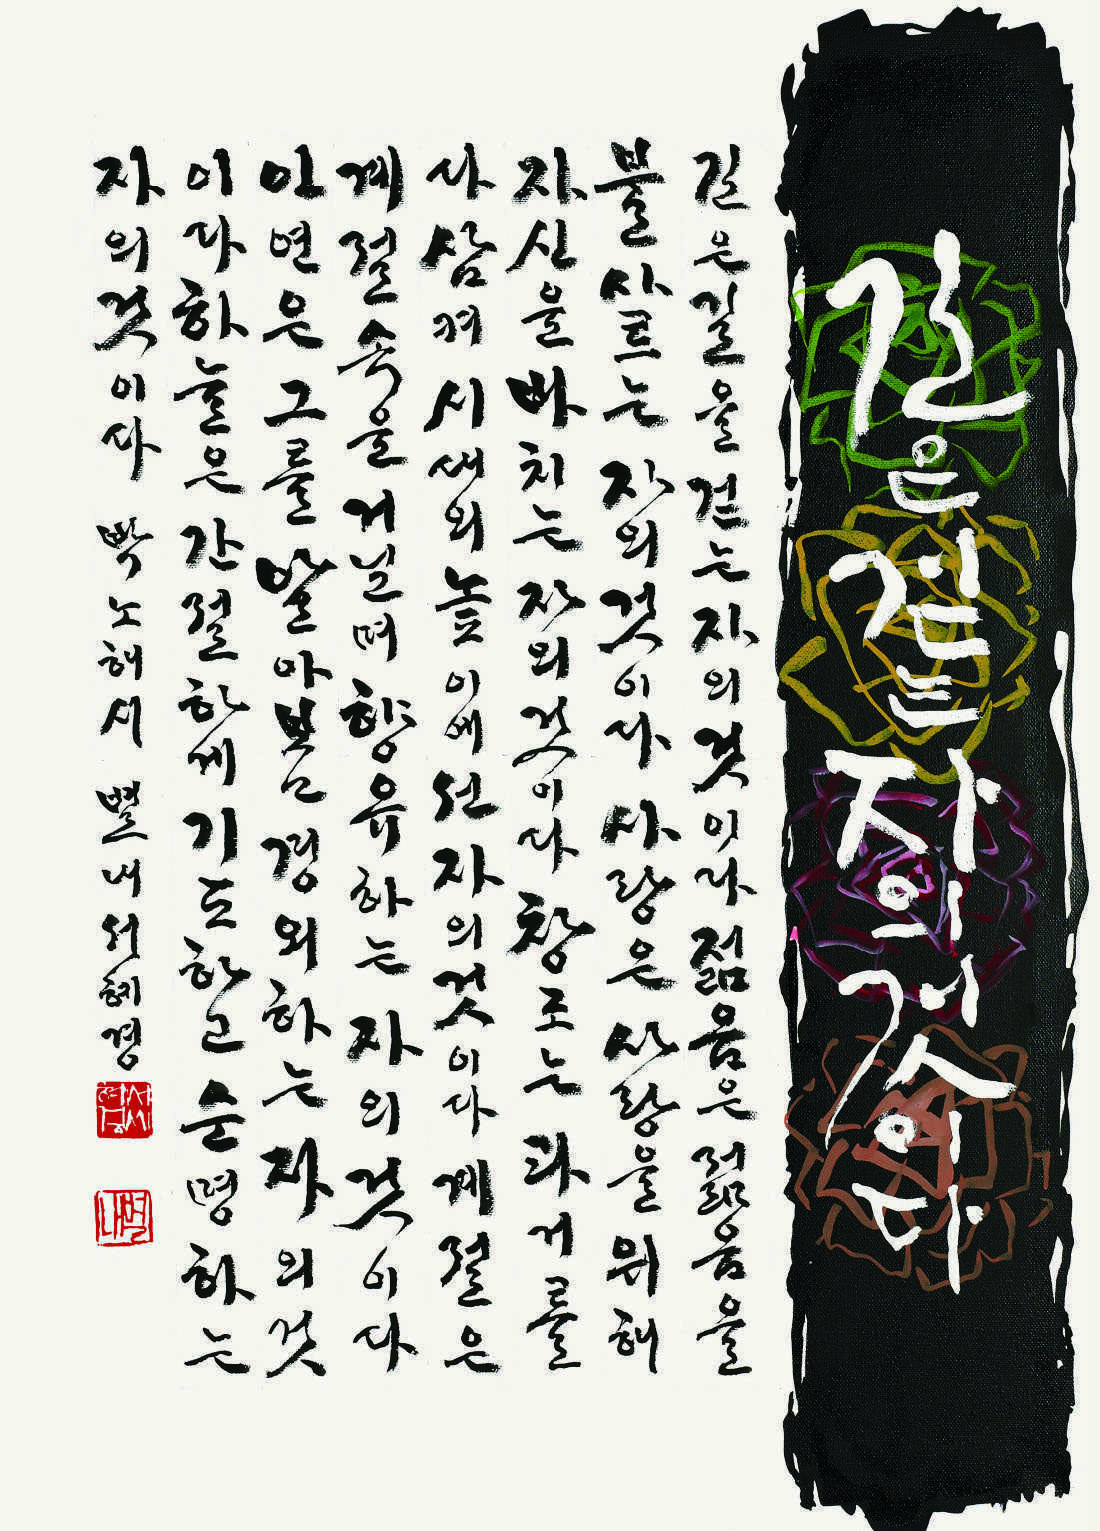 길은 걷는 자의 것이다
길은 길을 걷는 자의 것이다 젊음은 젊음을
불사르는 자의 것이다 사랑은 사랑을 위해
자신을 바치는 자의 것이다 창조는 과거를
다 삼켜 시대의 높이에 선 자의 것이다 계절은
계절 속을 거닐며 향유하는 자의 것이다
인연은 그를 알아봄 경외하는 자의 것
이다 하늘은 간절하게 기도하고 순명하는
자의 것이다 박노해 시 별내 선혜경
별내